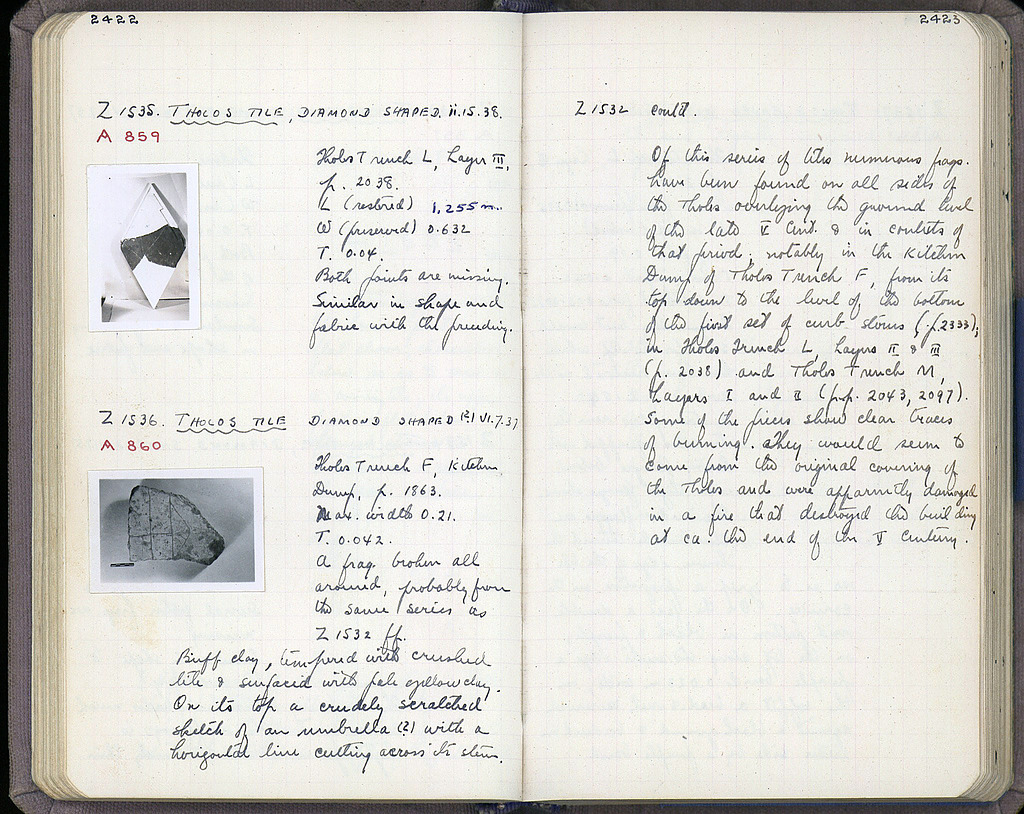 2422
Z 1535. THOLOS TILE, DIAMOND SHAPED. ii.15.38.
A 859
Tholos Trench L, Layer III,
p. 2038.
L (restored) 1,255 m.
W (preserved) 0.632
T. 0.04.
Both points are missing.
Similar in shape and
fabric with the preceding.
Z 1536. THOLOS TILE DIAMOND SHAPED (?) VI.7.37
A 860
Tholos Trench F, Kitchen
Dump, p. 1863.
Max. width 0.21.
T. 0.042.
A frag. broken all
around, probably from
the same series as
Z 1532 ff.
Buff clay, tempered with crushed
tile & surfaced with pale yellow clay.
On its top a crudely scratched
sketch of an umbrella (?) with a
horizontal line cutting across its stem.
2423
Z 1532 contd.
Of this series of tiles numerous frags.
have been found on all sides of
the Tholos overlying the ground level
of the late V Cent. & in contexts of
that period; notably in the Kitchen
Dump of Tholos Trench F, from its
top down to the level of the bottom
of the first set of curb stones (p. 2333);
in Tholos Trench L, Layers II & III
(p. 2038) and Tholos Trench M,
Layers I and II (pp. 2043, 2097).
Some of the pieces show clear traces
of burning. They would seem to
come from the original covering of
the Tholos and were apparently damaged
in a fire that destroyed the building
at ca. the end of the V Century.